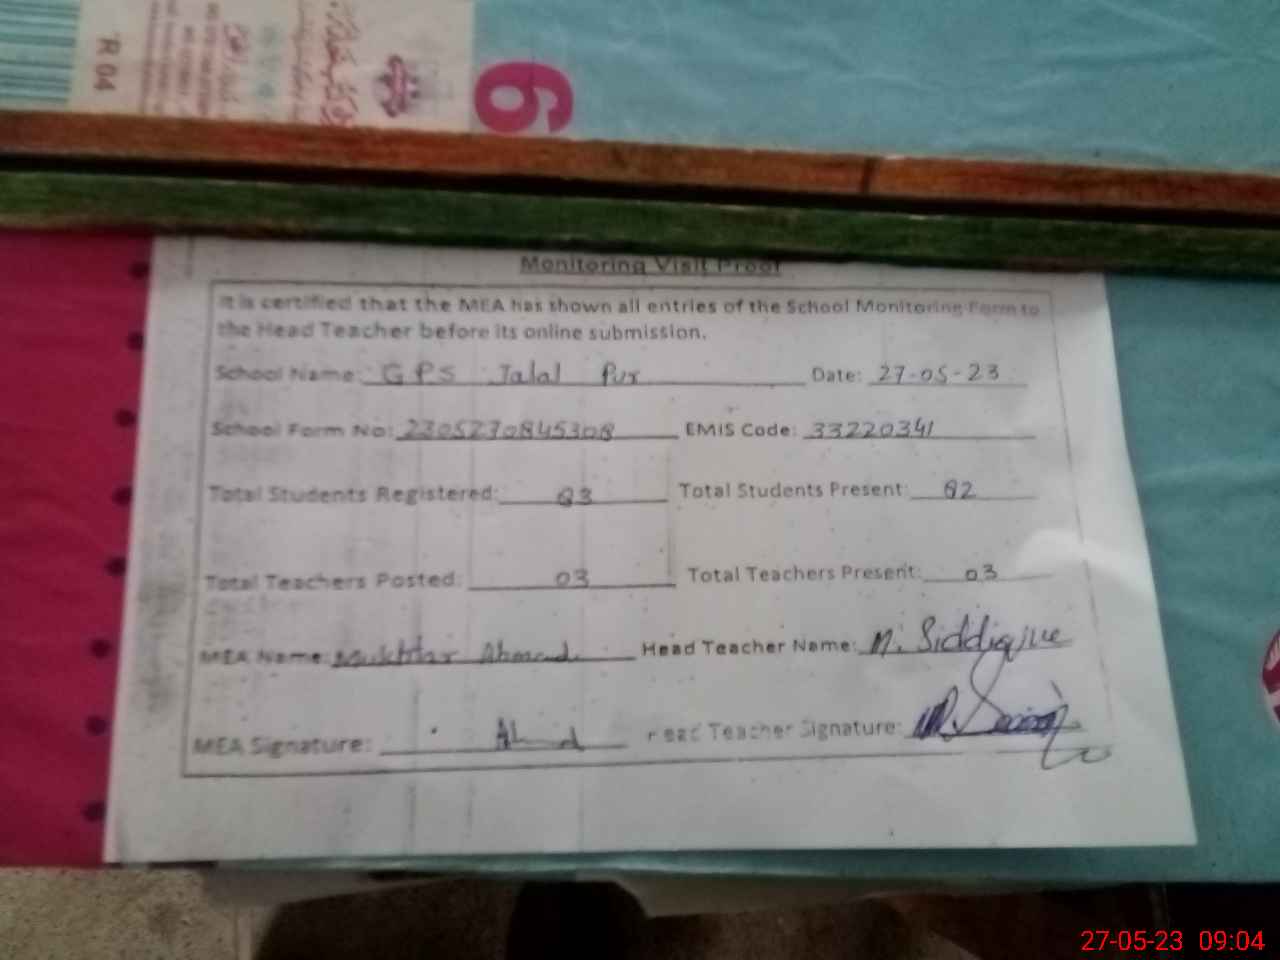 R 04
6
Monitoring Visit Proof
It is certified that the MEA has shown all entries of the School Monitoring Form to
the Head Teacher before its online submission.
School Name: GPS Jalal Pur Date: 27-05-23
School Form No: 2305270845308 EMIS Code: 33220341
Total Students Registered: 83 Total Students Present: 82
Total Teachers Posted: 03 Total Teachers Present: 03
MEA Name: Mukhtar Ahmad Head Teacher Name: M. Siddique
MEA Signature: Head Teacher Signature:
27-05-23 09:04